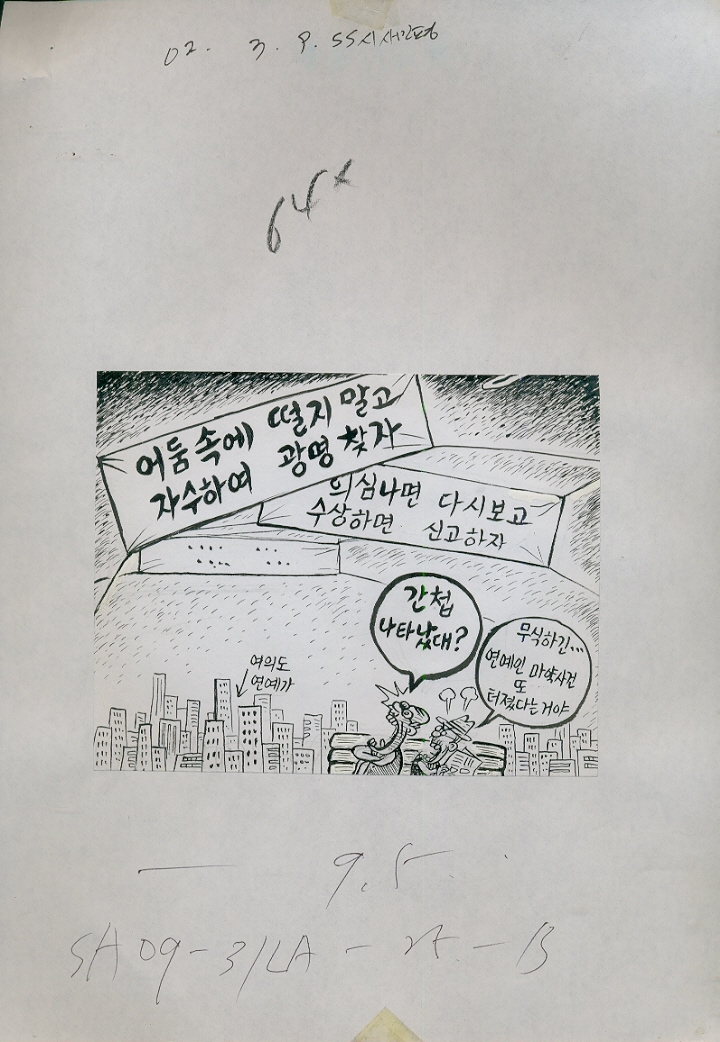 02. 3. 9. SS시사만평
64x
어둠 속에 떨지 말고
자수하여 광명 찾자
의심나면 다시보고
수상하면 신고하자
간첩
나타났대?
무식하긴...
연예인 마약사건
또
터졌다는거야
여의도
연예가
9.5
SH09-31LA - 25 - B